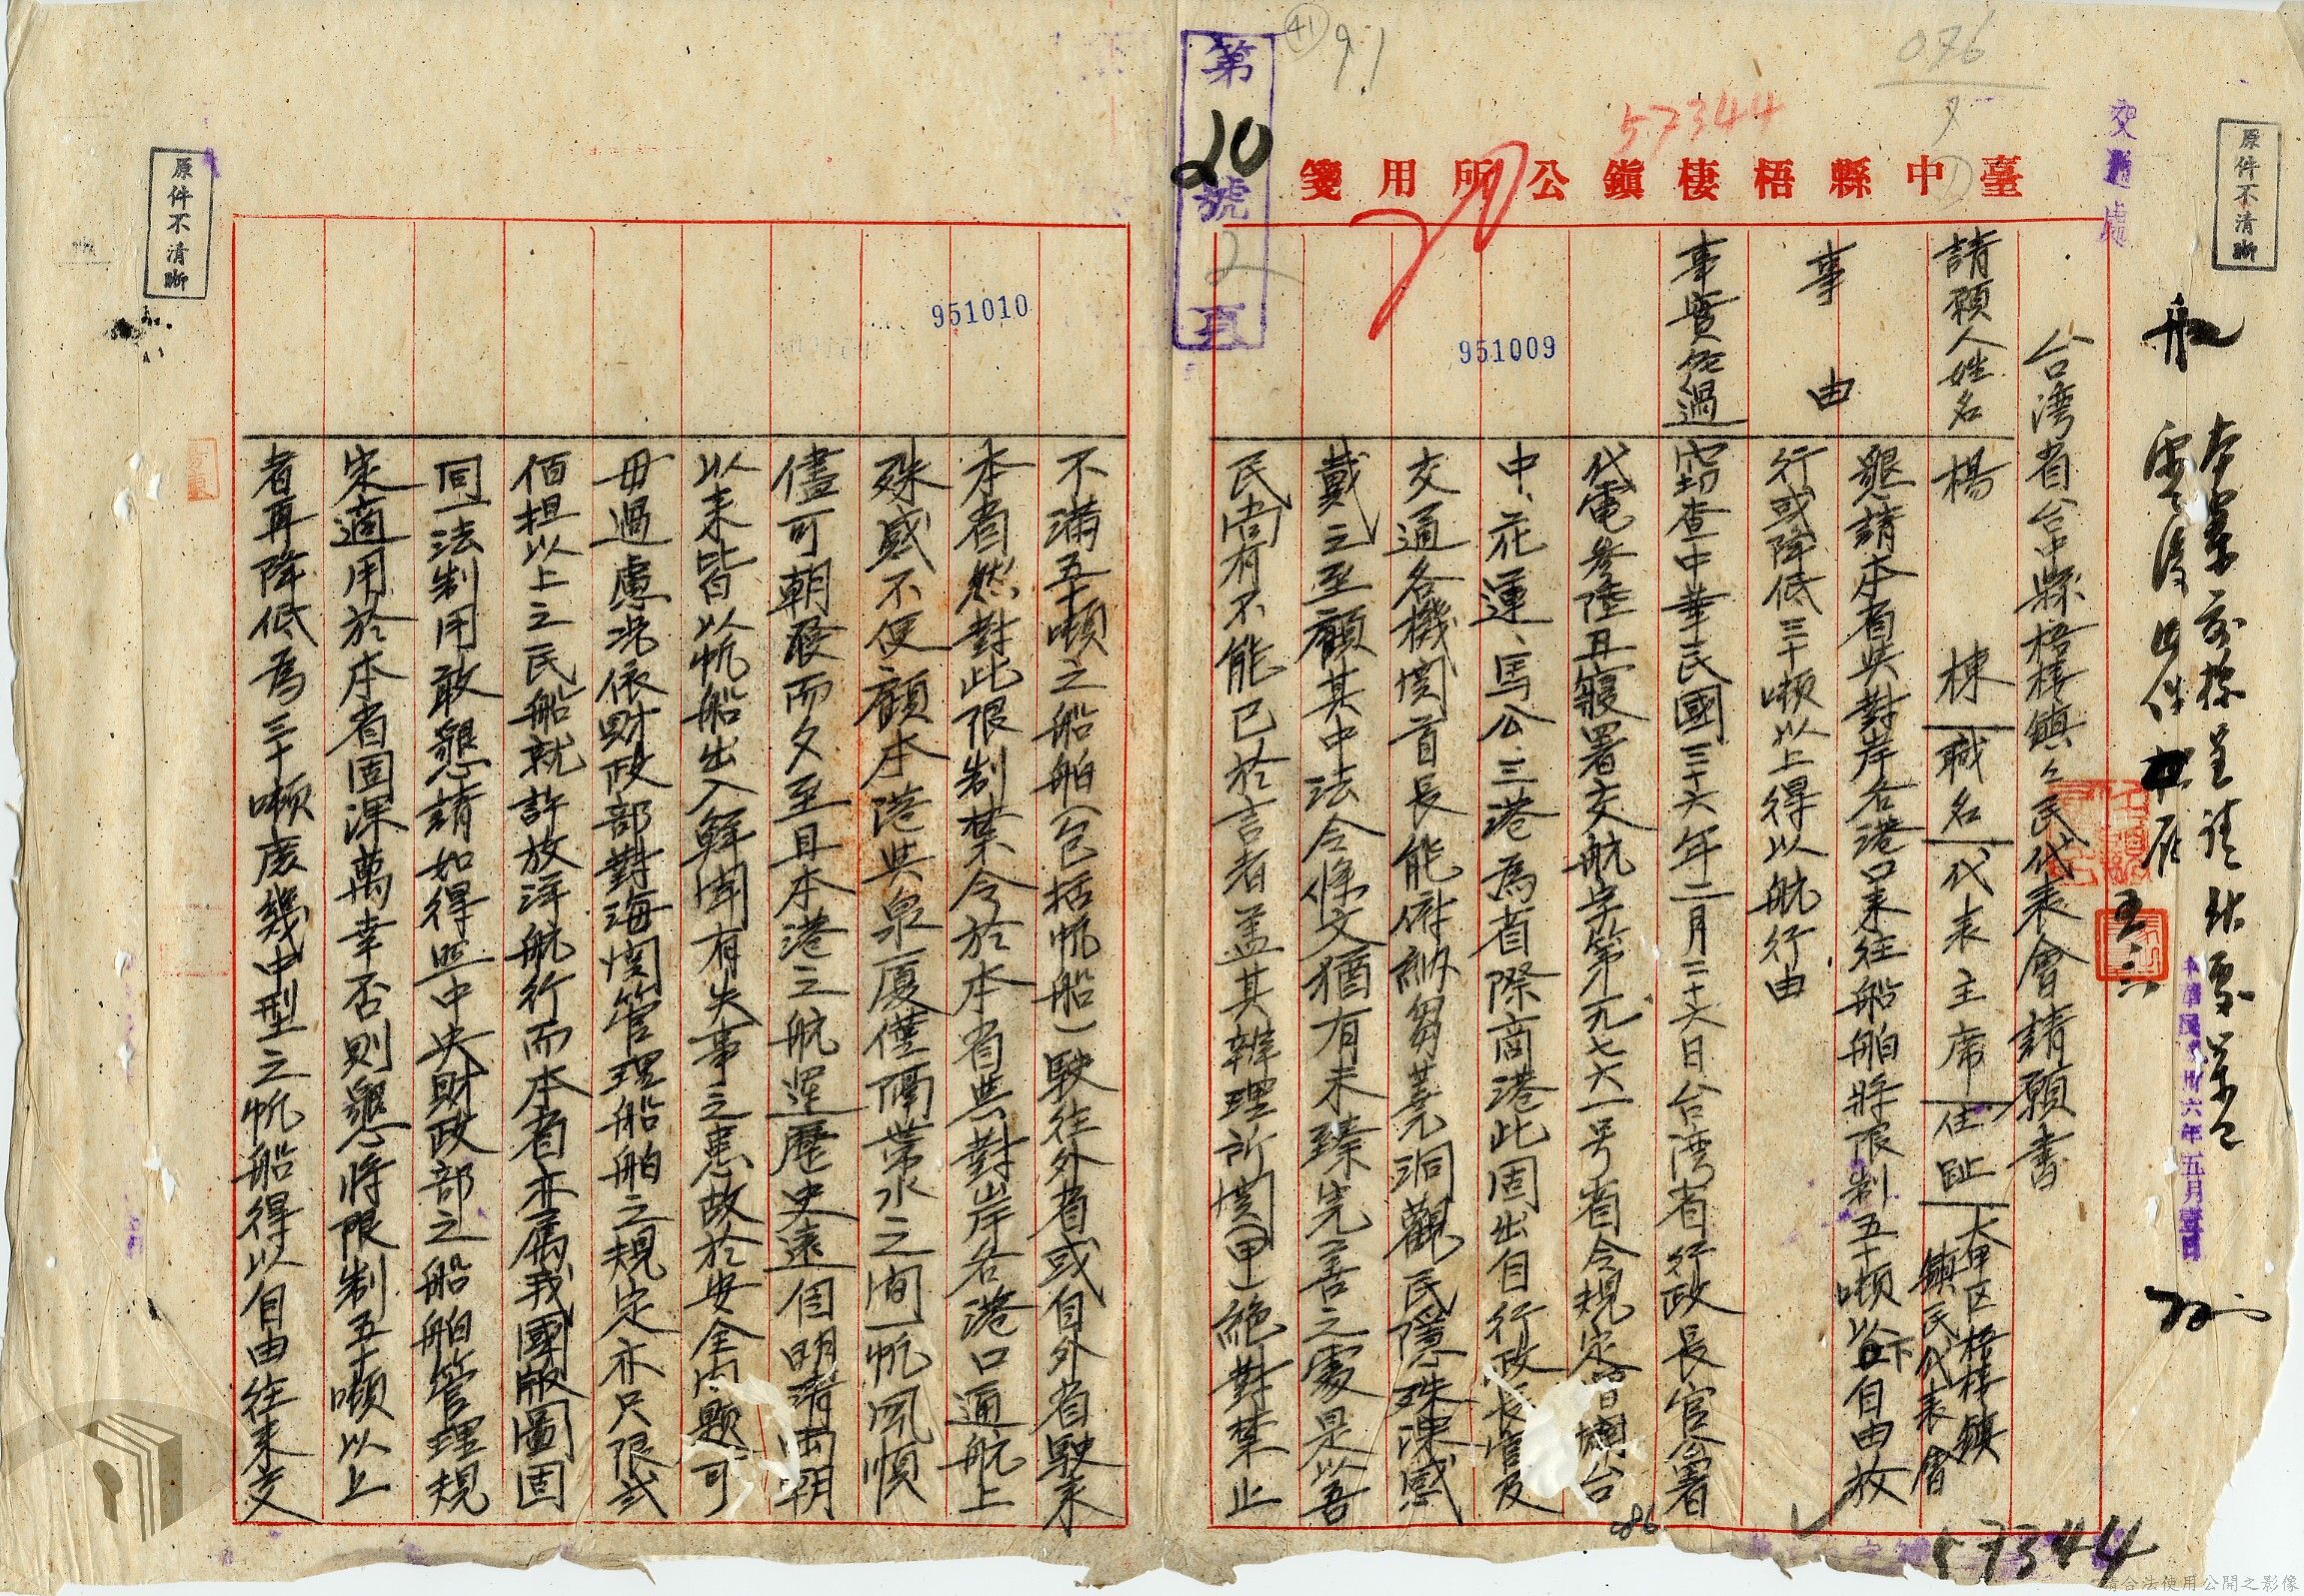 076
41
91
57344
臺中縣梧棲鎮公所用箋
交通處
原件不清晰
第20號2頁
台湾省台中縣梧棲鎮々民代表會請願書
請願人姓名 楊 棟 職名 代表主席 住趾 大甲区梧棲鎮
鎮民代表會
事由 懇請本省與對岸各港口来往船舶將限制五十噸以下自由放
行或降低三十噸以上得以航行由
事實経過 窃查中華民國三十六年二月二十六日台湾省行政長官公署
代電參陸丑寢署交航字第一九七六一号省令規定
中、花蓮、馬公、三港為省際商港此固出自行政長官及
交通各機関首長能俯納芻蕘洞觀民隱殊深感
戴之至顧其中法令條文猶有未臻完善之處是以吾
民尚有不能已於言者盖其辦理所関(甲)絶對禁止
951009
不満五十噸之船舶(包括帆船)駛往外省或自外省駛来
本省然對此限制禁令於本省與對岸各港口通航上
殊感不便顧本港與泉廈僅隔帶水之间一帆風順
儘可朝發而夕至且本港之航運歷史遠自明清
以来皆以帆船出入鮮闻有失事之患故於安全问題可
毋過慮况依財政部對海関管理船舶之規定亦只限弍
佰担以上之民船就許放洋航行而本省亦属我國版圖固
同一法制用敢懇請如得照中央財政部之船舶管理規
宋適用於本省固深萬幸否則懇將限制五十噸以上
者再降低為三十噸庶幾中型之帆船得以自由往来交
951010
原件不清晰
六年五月
57344
86
請合法使用公開之影像